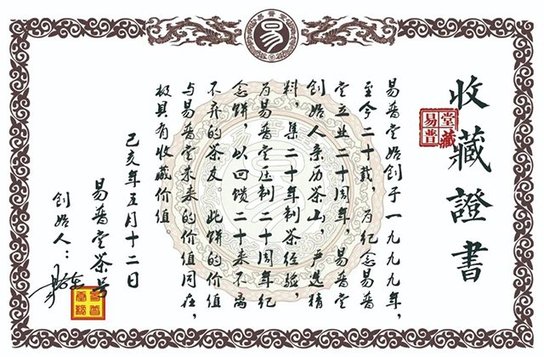 易
收藏證書
易普堂藏
易普堂始创于一九九九年,
至今二十载,为纪念易普
堂立业二十周年,易普堂
创始人亲历茶山,严选精
料,集二十年制茶经验,
为易普堂压制二十周年纪
念饼,以回馈二十来不离
不弃的茶友。此饼的价值
与易普堂未来的价值同在,
极具有收藏价值
己亥年五月十二日
易普堂茶号
创始人: